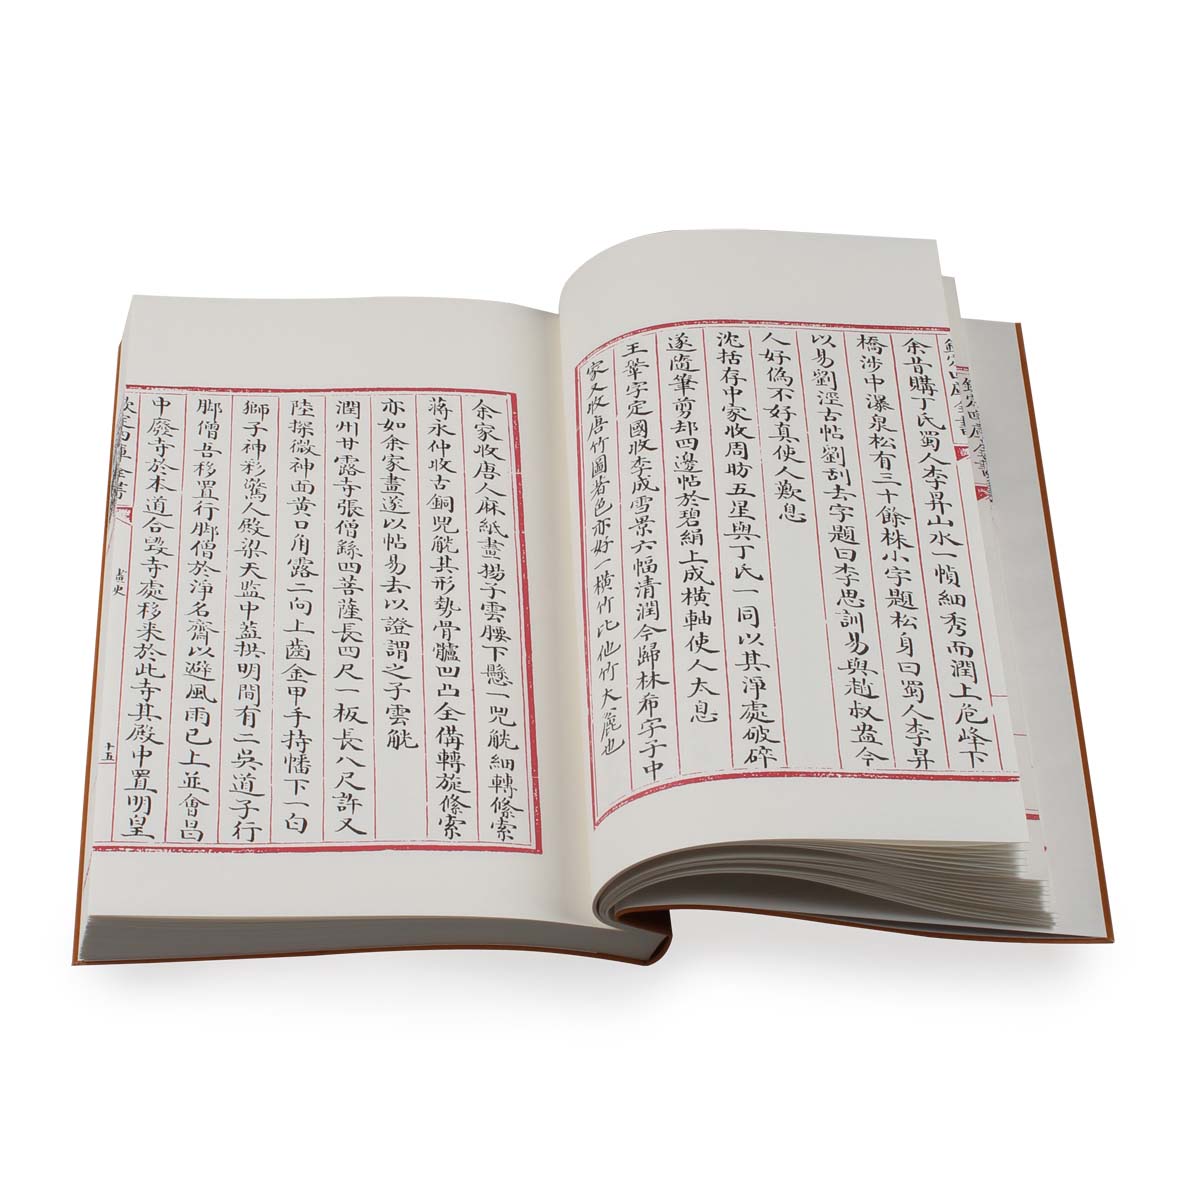 余昔購丁氏蜀人李昇山水一幀細秀而潤上危峰下
橋涉中瀑泉松有三十餘株小字題松身曰蜀人李昇
以易劉涇古帖劉刮去字題曰李思訓易與趙叔盎今
人好偽不好真使人歎息
沈括存中家收周昉五星與丁氏一同以其淨處破碎
遂隨筆剪却四邊帖於碧絹上成橫軸使人太息
王鞏字定國收李成雪景六幅清潤今歸林希字子中
家又收唐竹圖著色亦好一橫竹比他竹大麄也
余家收唐人麻紙畫揚子雲腰下懸一兕觥細轉絛索
蔣永仲收古銅兕觥其形勢骨髗凹凸全備轉旋絛索
亦如余家畫遂以帖易去以證謂之子雲觥
潤州甘露寺張僧繇四菩薩長四尺一板長八尺許又
陸探微神面黄口角露二向上齒金甲手持幡下一白
獅子神彩驚人殿梁天監中蓋拱明間有二吳道子行
脚僧吾移置行脚僧於淨名齋以避風雨已上並會昌
中廢寺於本道合毀寺處移来於此寺其殿中置明皇
欽定四庫全書
畫史
十五